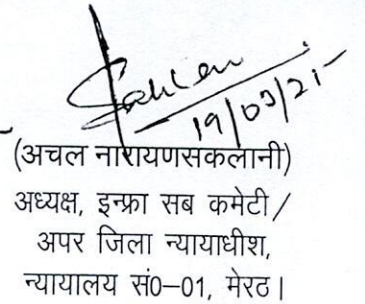 19/03/21
(अचल नारायणसकलानी)
अध्यक्ष, इन्फ्रा सब कमेटी/
अपर जिला न्यायाधीश,
न्यायालय सं0–01, मेरठ।